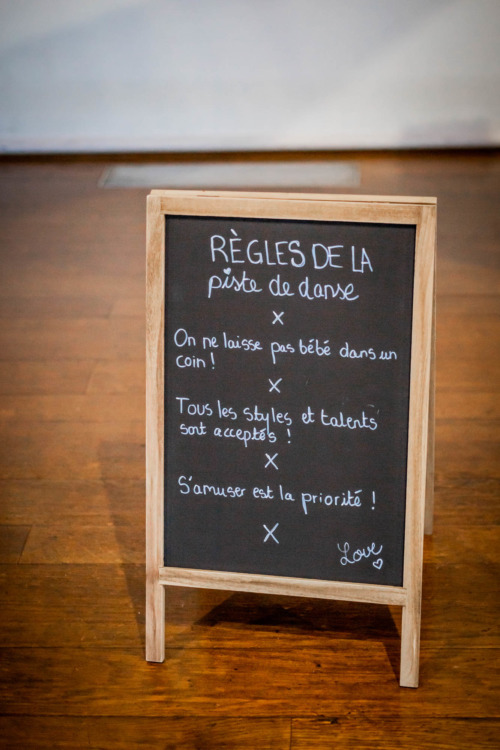 RÈGLES DE LA
piste de danse
X
On ne laisse pas bébé dans un
coin !
X
Tous les styles et talents
sont acceptés !
X
S'amuser est la priorité !
X
Love